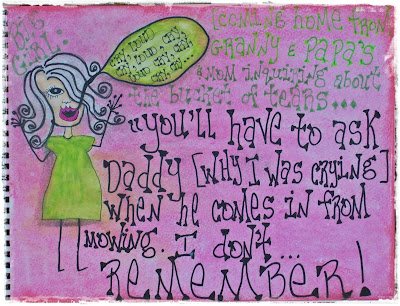 GIRL:
[COMING HOME FROM
GRANNY & PAPA'S
a mom inquiring about
the bucket of tears...
"YOU'LL HAVE TO ask
DADDY [WHY I WAS CRYING]
WHEN HE COMES IN FROM
MOWING. I DON'T...
REMEMBER!